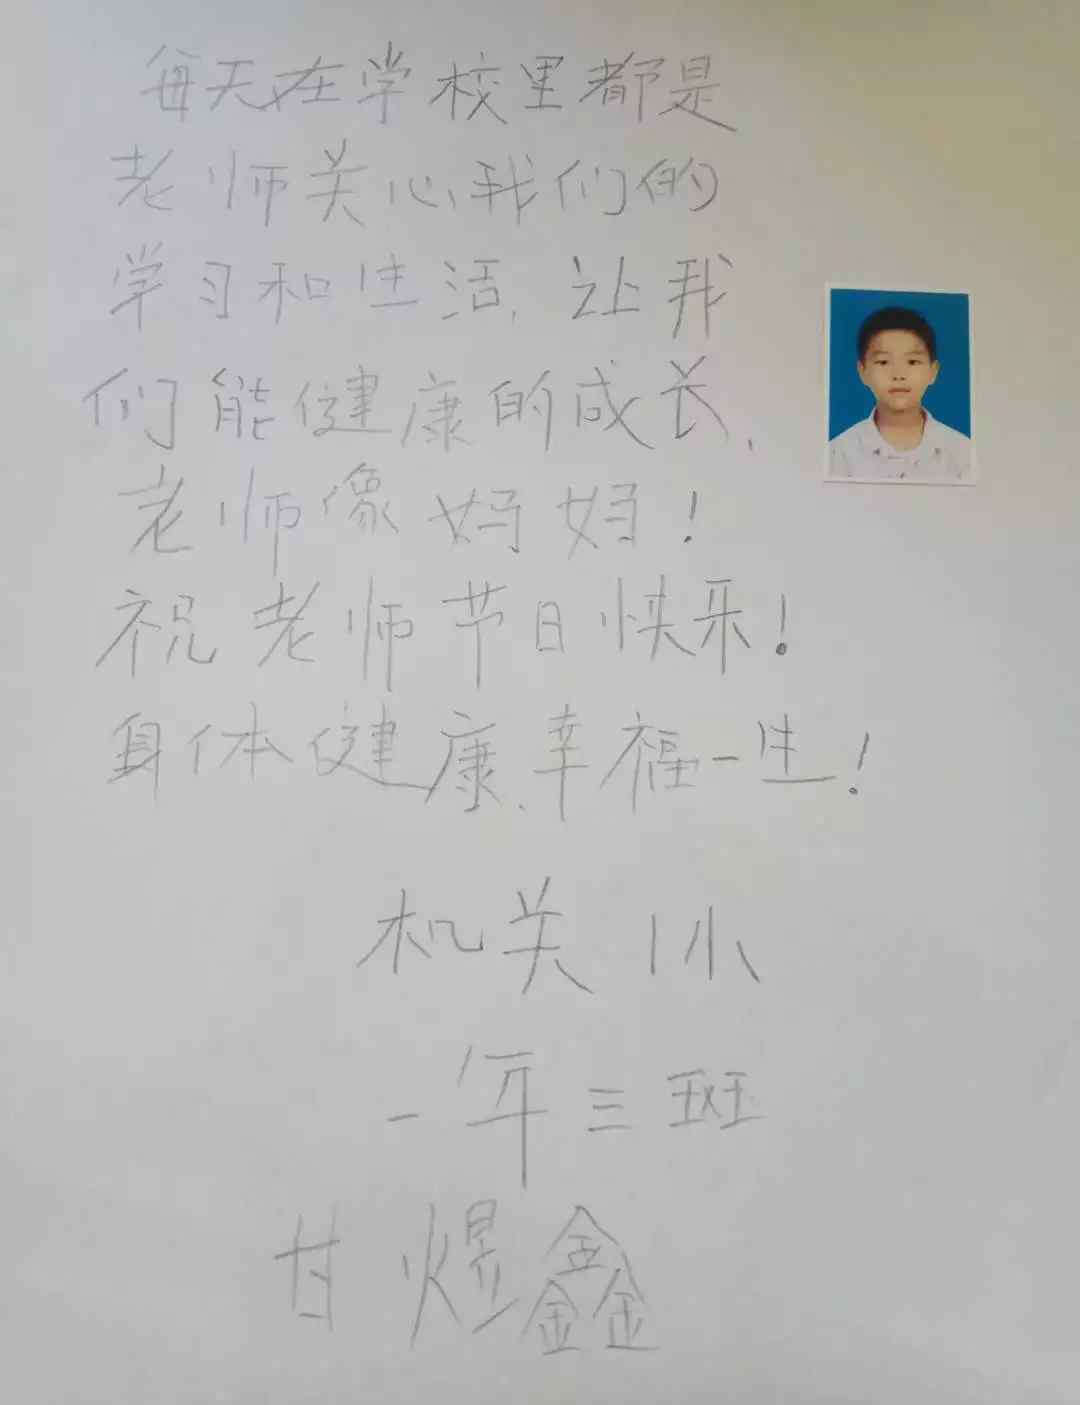 每天在学校里都是
老师关心我们的
学习和生活,让我
们能健康的成长,
老师像妈妈!
祝老师节日快乐!
身体健康,幸福一生!
机关1小
一年三班
甘煜鑫